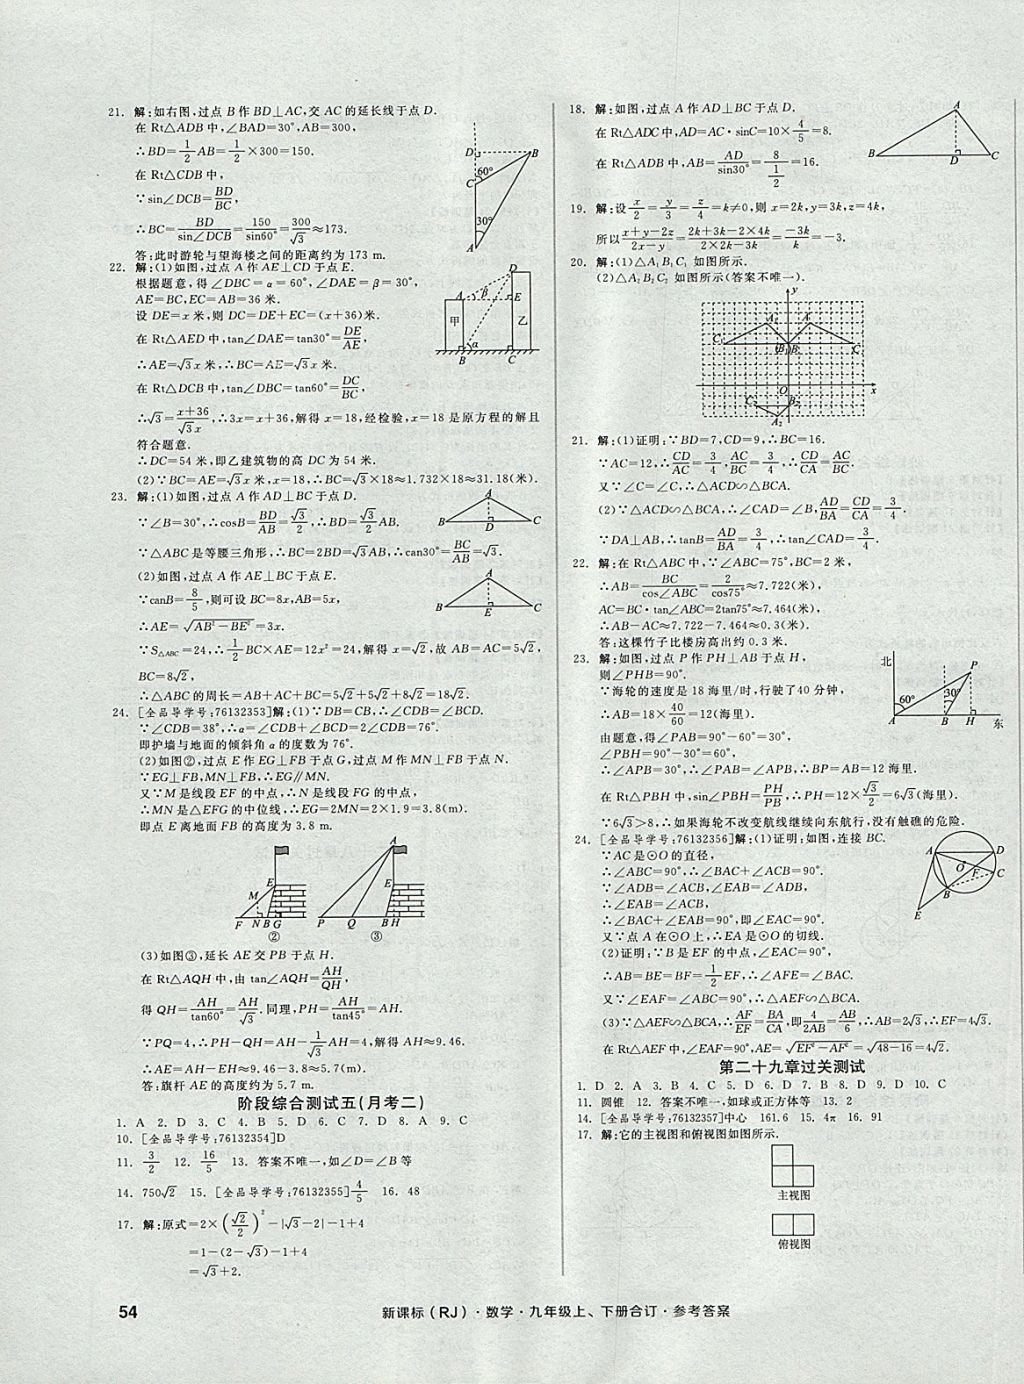 21. 解:如右图,过点 B 作 BD⊥AC,交 AC 的延长线于点 D.
在 Rt△ADB 中,∠BAD=30°,AB=300,
∴BD=1/2 AB=1/2×300=150.
在 Rt△CDB 中,
∵sin∠DCB=BD/BC,
∴BC=BD/sin∠DCB=150/sin60°=300/√3≈173.
答:此时游轮与望海楼之间的距离约为 173 m.
22. 解:(1)如图,过点 A 作 AE⊥CD于点 E.
根据题意,得∠DBC=α=60°,∠DAE=β=30°,
AE=BC,EC=AB=36 米.
设 DE=x 米,则 DC=DE+EC=(x+36)米.
在 Rt△AED 中,tan∠DAE=tan30°=DE/AE,
∴AE=√3x 米,∴BC=AE=√3x 米.
在 Rt△DCB 中,tan∠DBC=tan60°=DC/BC,
∴√3=(x+36)/√3x,∴3x=x+36,解得 x=18,经检验,x=18 是原方程的解且
符合题意.
∴DC=54 米,即乙建筑物的高 DC 为 54 米.
(2)∵BC=AE=√3x 米,x=18,∴BC=√3×18≈1.732×18≈31.18(米).
23. 解:(1)如图,过点 A 作 AD⊥BC 于点 D.
∵∠B=30°,∴cosB=BD/AB=√3/2,∴BD=√3/2 AB.
∵△ABC 是等腰三角形,∴BC=2BD=√3AB,∴can30°=BC/AB=√3.
(2)如图,过点 A 作 AE⊥BC 于点 E.
∵canB=8/5,则可设 BC=8x,AB=5x,
∴AE=√(AB²-BE²)=3x.
∵S△ABC=24,∴1/2 BC×AE=12x²=24,解得 x=√2,故 AB=AC=5√2,
BC=8√2,
∴△ABC 的周长=AB+AC+BC=5√2+5√2+8√2=18√2.
24. [全品导学号:76132353]解:(1)∵DB=CB,∴∠CDB=∠BCD.
∵∠CDB=38°,∴∠α=∠CDB+∠BCD=2∠CDB=76°.
即护墙与地面的倾斜角 α 的度数为 76°.
(2)如图②,过点 E 作 EG⊥FB 于点 G,过点 M 作 MN⊥FB 于点 N.
∵EG⊥FB,MN⊥FB,∴EG∥MN.
又∵M 是线段 EF 的中点,∴N 是线段 FG 的中点,
∴MN 是△EFG 的中位线,∴EG=2MN=2×1.9=3.8(m).
即点 E 离地面 FB 的高度为 3.8 m.
② ③
(3)如图③,延长 AE 交 PB 于点 H.
在 Rt△AQH 中,由 tan∠AQH=AH/QH,
得 QH=AH/tan60°=AH/√3.同理,PH=AH/tan45°=AH.
∵PQ=4,∴PH-QH=AH-1/√3 AH=4,解得 AH≈9.46.
∴AE=AH-EH≈9.46-3.8≈5.7(m).
答:旗杆 AE 的高度约为 5.7 m.
阶段综合测试五(月考二)
1. A 2. D 3. C 4. B 5. C 6. C 7. D 8. A 9. C
10. [全品导学号:76132354]D
11. 3/2 12. 16/5 13. 答案不唯一,如∠D=∠B 等
14. 750√2 15. [全品导学号:76132355]4/5 16. 48
17. 解:原式=2×(√2/2)²-|√3-2|-1+4
=1-(2-√3)-1+4
=√3+2.
18. 解:如图,过点 A 作 AD⊥BC 于点 D.
在 Rt△ADC 中,AD=AC·sinC=10×4/5=8.
在 Rt△ADB 中,AB=AD/sin30°=8/(1/2)=16.
19. 解:设 x/2=y/3=z/4=k≠0,则 x=2k,y=3k,z=4k,
所以(x+y-2z)/(2x-y)=(2k+3k-2×4k)/(2×2k-3k)=-3k/k=-3.
20. 解:(1)△A₁B₁C₁ 如图所示.
(2)△A₂B₂C₂ 如图所示(答案不唯一).
21. 解:(1)证明:∵BD=7,CD=9,∴BC=16.
∵AC=12,∴CD/AC=3/4,AC/BC=3/4,∴CD/AC=AC/BC.
又∵∠C=∠C,∴△ACD∽△BCA.
(2)∵△ACD∽△BCA,∴∠CAD=∠B,AD/BA=CD/CA=3/4.
∵DA⊥AB,∴tanB=AD/BA=3/4,∴tan∠CAD=3/4.
22. 解:在 Rt△ABC 中,∵∠ABC=75°,BC=2 米,
∴AB=BC/cos∠ABC=2/cos75°≈7.722(米),
AC=BC·tan∠ABC=2tan75°≈7.464(米),
∴AB-AC≈7.722-7.464≈0.3(米).
答:这棵竹子比楼房高出约 0.3 米.
23. 解:如图,过点 P 作 PH⊥AB 于点 H,
则∠PHB=90°.
∵海轮的速度是 18 海里/时,行驶了40 分钟,
∴AB=18×40/60=12(海里).
由题意,得∠PAB=90°-60°=30°,
∠PBH=90°-30°=60°,
∴∠APB=30°,∴∠PAB=∠APB,∴BP=AB=12 海里.
在 Rt△PBH 中,sin∠PBH=PH/PB,∴PH=12×√3/2=6√3(海里).
∵6√3>8,∴如果海轮不改变航线继续向东航行,没有触礁的危险.
24. [全品导学号:76132356]解:(1)证明:如图,连接 BC.
∵AC 是⊙O 的直径,
∴∠ABC=90°,∴∠BAC+∠ACB=90°.
∵∠ADB=∠ACB,∠EAB=∠ADB,
∴∠EAB=∠ACB,
∴∠BAC+∠EAB=90°,即∠EAC=90°.
又∵点 A 在⊙O 上,∴EA 是⊙O 的切线.
(2)证明:∵B 是 EF 的中点,∠EAC=90°,
∴AB=BE=BF=1/2 EF,∴∠AFE=∠BAC.
又∵∠EAF=∠ABC=90°,∴△AEF∽△BCA.
(3)∵△AEF∽△BCA,∴AF/EF=BA/CA,即4/2AB=AB/6,∴AB=2√3,∴EF=4√3.
在 Rt△AEF 中,∠EAF=90°,AE=√(EF²-AF²)=√(48-16)=4√2.
第二十九章过关测试
1. D 2. A 3. B 4. C 5. D 6. D 7. B 8. D 9. D 10. C
11. 圆锥 12. 答案不唯一,如球或正方体等 13. 2
14. [全品导学号:76132357]中心 161.6 15. 4π 16. 91
17. 解:它的主视图和俯视图如图所示.
主视图
俯视图
54 新课标(RJ)·数学·九年级上、下册合订·参考答案